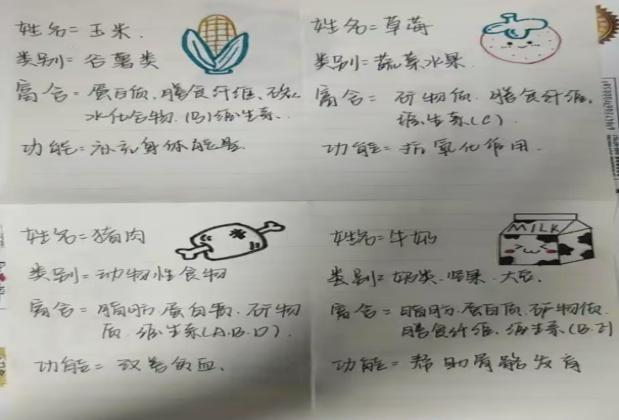 姓名=玉米.
类别=谷薯类
富含=蛋白质.膳食纤维、碳
水化合物.(B)维生素.
功能=补充身体能量.
姓名=草莓
类别=蔬菜水果.
富含=矿物质.膳食纤维.
维生素(C).
功能=抗氧化作用.
姓名=猪肉
类别=动物性食物
富含=脂肪.蛋白质.矿物
质.维生素(A.B.D).
功能=改善贫血.
姓名=牛奶
MILK
类别=奶类.坚果.大豆.
富含=脂肪.蛋白质.矿物质.
膳食纤维.维生素(B.E)
功能=帮助骨骼发育